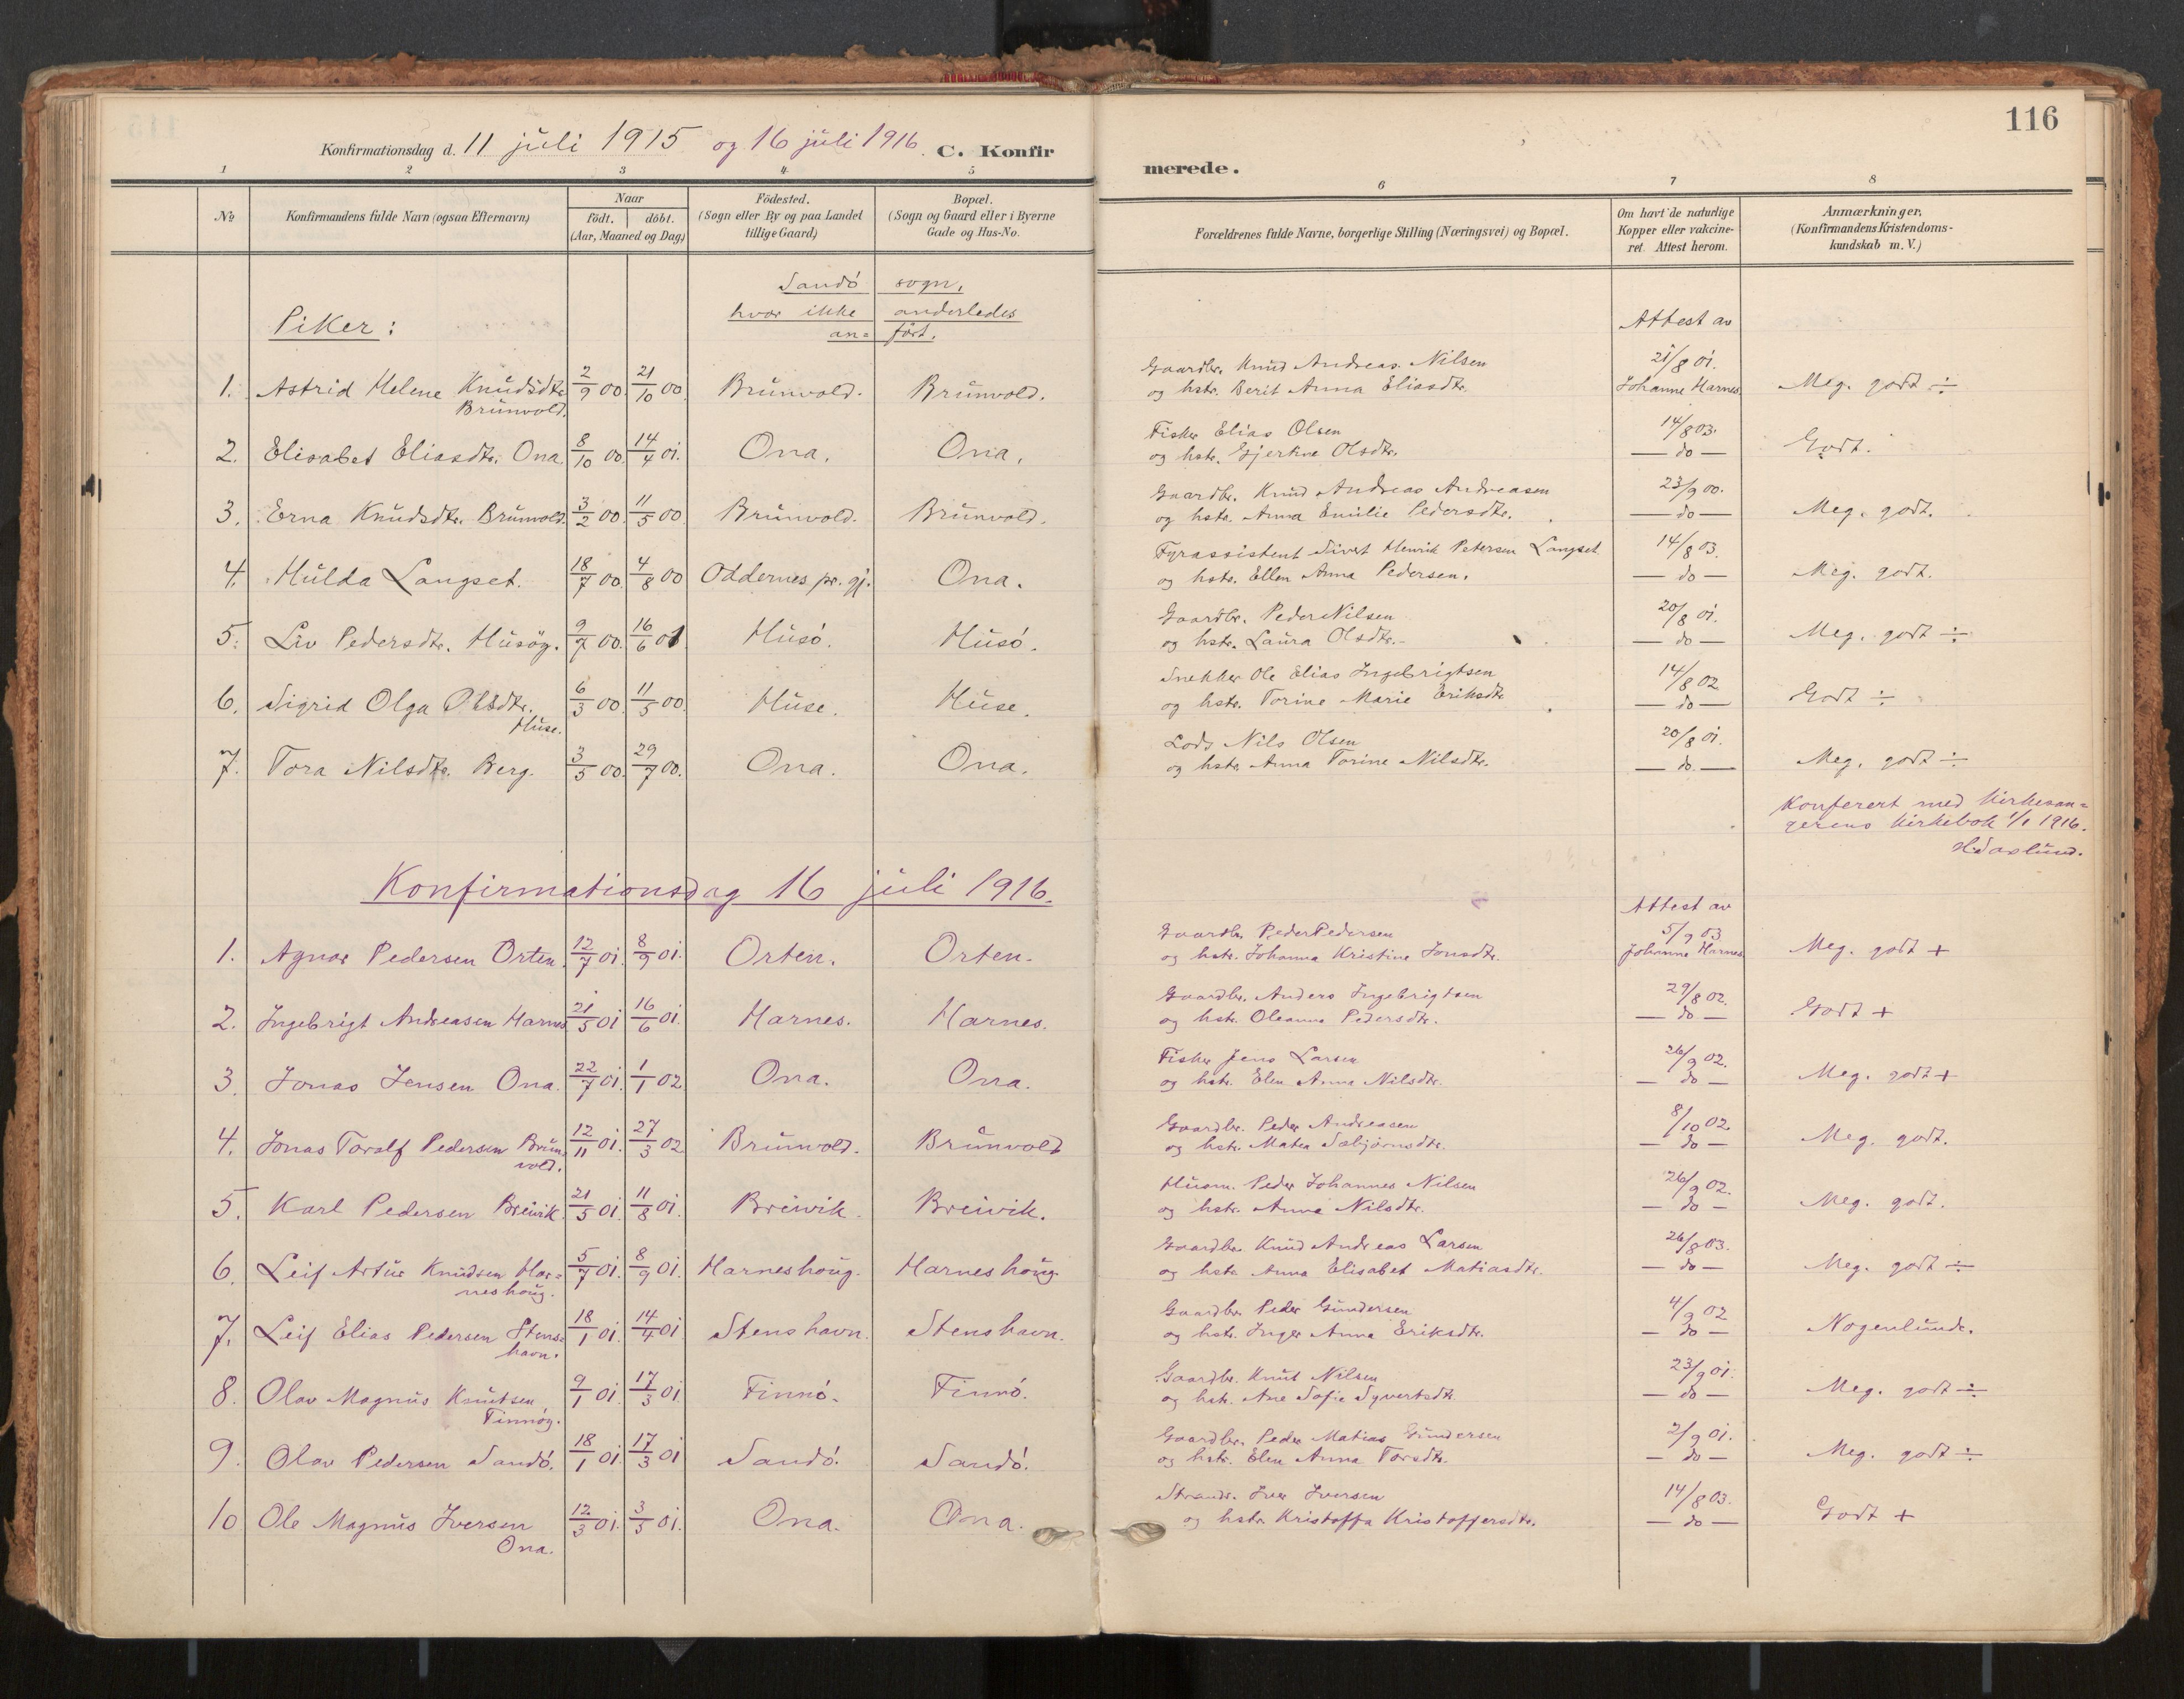 116
Konfirmationsdag d. 11 juli 1915 og 16 juli 1916. C. Konfirmerede.
1 2 3 4 5 6 7 8
No
Konfirmandens fulde Navn (ogsaa Efternavn)
Naar
født. | døbt.
(Aar, Maaned og Dag)
Fødested.
(Sogn eller By og paa Landet
tillige Gaard)
Bopæl.
(Sogn og Gaard eller i Byerne
Gade og Hus-No.
Forældrenes fulde Navne, borgerlige Stilling (Næringsvei) og Bopæl.
Om havt de naturlige
Kopper eller vakcine-
ret. Attest herom.
Anmærkninger,
(Konfirmandens Kristendoms-
kundskab m. V.)
Sandö sogn,
hvor ikke anderledes
an= fört.
Piker:
Attest av
1. Astrid Helene Knudsdtr. Brunvold. 2/9 00. 21/10 00. Brunvold. Brunvold. Gaardbr. Knud Andreas Nilsen 21/8 01.
og hstr. Berit Anna Eliasdtr. Johanne Harnes. Meg. godt ÷
2. Elisabet Eliasdtr. Ona. 8/10 00. 14/4 01. Ona. Ona. Fisker Elias Olsen 14/8 03.
og hstr. Gjertine Olsdtr. — do — Godt.
3. Erna Knudsdtr. Brunvold. 3/2 00. 11/5 00. Brunvold. Brunvold. Gaardbr. Knud Andreas Andreasen 23/9 00.
og hstr. Anna Emilie Pedersdtr. — do — Meg. godt.
4. Hulda Langset. 18/7 00. 4/8 00 Oddernes pr. gj. Ona. Fyrassistent Sivert Henrik Petersen Langset 14/8 03.
og hstr. Ellen Anna Pedersen. — do — Meg. godt.
5. Liv Pedersdtr. Husøy. 9/7 00. 16/6 01 Husö. Husö. Gaardbr. Peder Nilsen 20/8 01.
og hstr. Laura Olsdtr. — do — Meg. godt ÷
6. Sigrid Olga Olsdtr. Huse. 6/3 00. 11/5 00. Huse. Huse. Snekker Ole Elias Ingebrigtsen 14/8 02
og hstr. Torine Marie Eriksdtr. — do — Godt ÷
7. Tora Nilsdtr. Berg. 3/5 00. 29/7 00. Ona. Ona. Lods Nils Olsen 20/8 01.
og hstr. Anna Torine Nilsdtr. — do — Meg. godt ÷
Konferert med Kirkesan=
gerens Kirkebok 1/1 1916.
Konfirmationsdag 16 juli 1916.
Attest av
1. Agnar Pedersen Orten. 12/7 01. 8/9 01. Orten. Orten. Gaardbr. Peder Pedersen 5/9 03
og hstr. Johanna Kristine Jonsdtr. Johanne Harnes Meg. godt +
2. Ingebrigt Andreasen Harnes 21/5 01 16/6 01. Harnes. Harnes. Gaardbr. Anders Ingebrigtsen 29/8 02.
og hstr. Oleanna Pedersdtr. — do — Godt +
3. Jonas Jensen Ona. 22/7 01. 1/1 02 Ona. Ona. Fisker Jens Larsen 26/9 02.
og hstr. Elen Anna Nilsdtr. — do — Meg. godt +
4. Jonas Toralf Pedersen Brunvold. 12/11 01. 27/3 02 Brunvold. Brunvold Gaardbr. Peder Andreasen 8/10 02
og hstr. Matea Sæbjörnsdtr. — do — Meg. godt.
5. Karl Pedersen Breivik. 21/5 01. 11/8 01. Breivik. Breivik. Husm. Peder Johannes Nilsen 26/9 02.
og hstr. Anna Nilsdtr. — do — Meg. godt.
6. Leif Artur Knudsen Har=neshoug. 5/7 01. 8/9 01. Harneshoug. Harneshoug. Gaardbr. Knud Andreas Larsen 26/8 03.
og hstr. Anna Elisabet Matiasdtr. — do — Meg. godt ÷
7. Leif Elias Pedersen Stens=havn. 18/1 01. 14/4 01 Stenshavn. Stenshavn. Gaardbr. Peder Gundersen 4/9 02
og hstr. Inger Anna Eriksdtr. — do — Nogenlunde.
8. Olav Magnus Knutsen Finnøy. 9/1 01 17/3 01 Finnö. Finnö. Gaardbr. Knut Nilsen 23/9 01.
og hstr. Ane Sofie Syvertsdtr. — do — Meg. godt ÷
9. Olav Pedersen Sandö. 18/1 01. 17/3 01 Sandö. Sandö. Gaardbr. Peder Matias Gundersen 2/9 01.
og hstr. Elen Anna Torsdtr. — do — Meg. godt ÷
10 Ole Magnus Iversen Ona. 12/3 01. 3/5 01. Ona. Ona. Strands. Iver Iversen 14/8 03.
og hstr. Kristoffa Kristoffersdtr. — do — Godt +